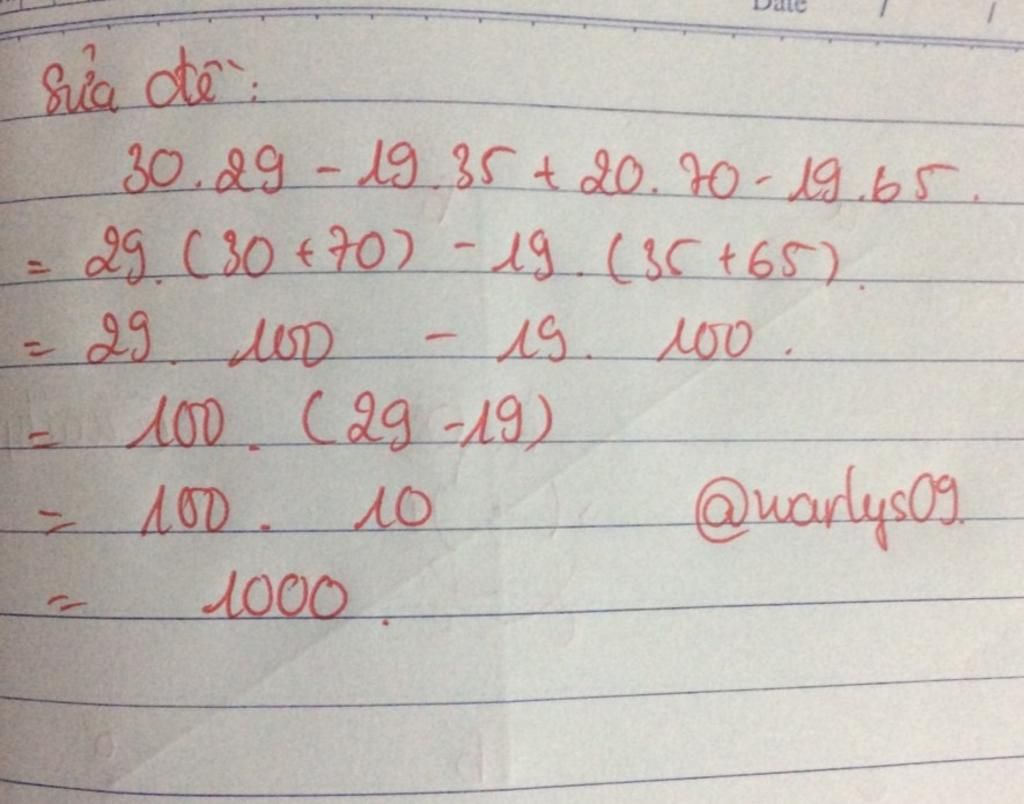 Date / /
Sửa đề:
30.29 - 19.35 + 20.70 - 19.65.
= 29.(30+70) - 19.(35+65).
= 29. 100 - 19. 100.
= 100.(29-19)
= 100. 10
@warlys09.
= 1000.